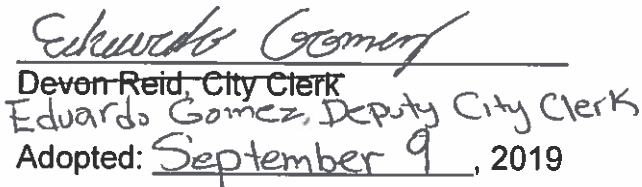 Eduardo Gomez
Devon Reid, City Clerk
Eduardo Gomez, Deputy City Clerk
Adopted: September 9, 2019